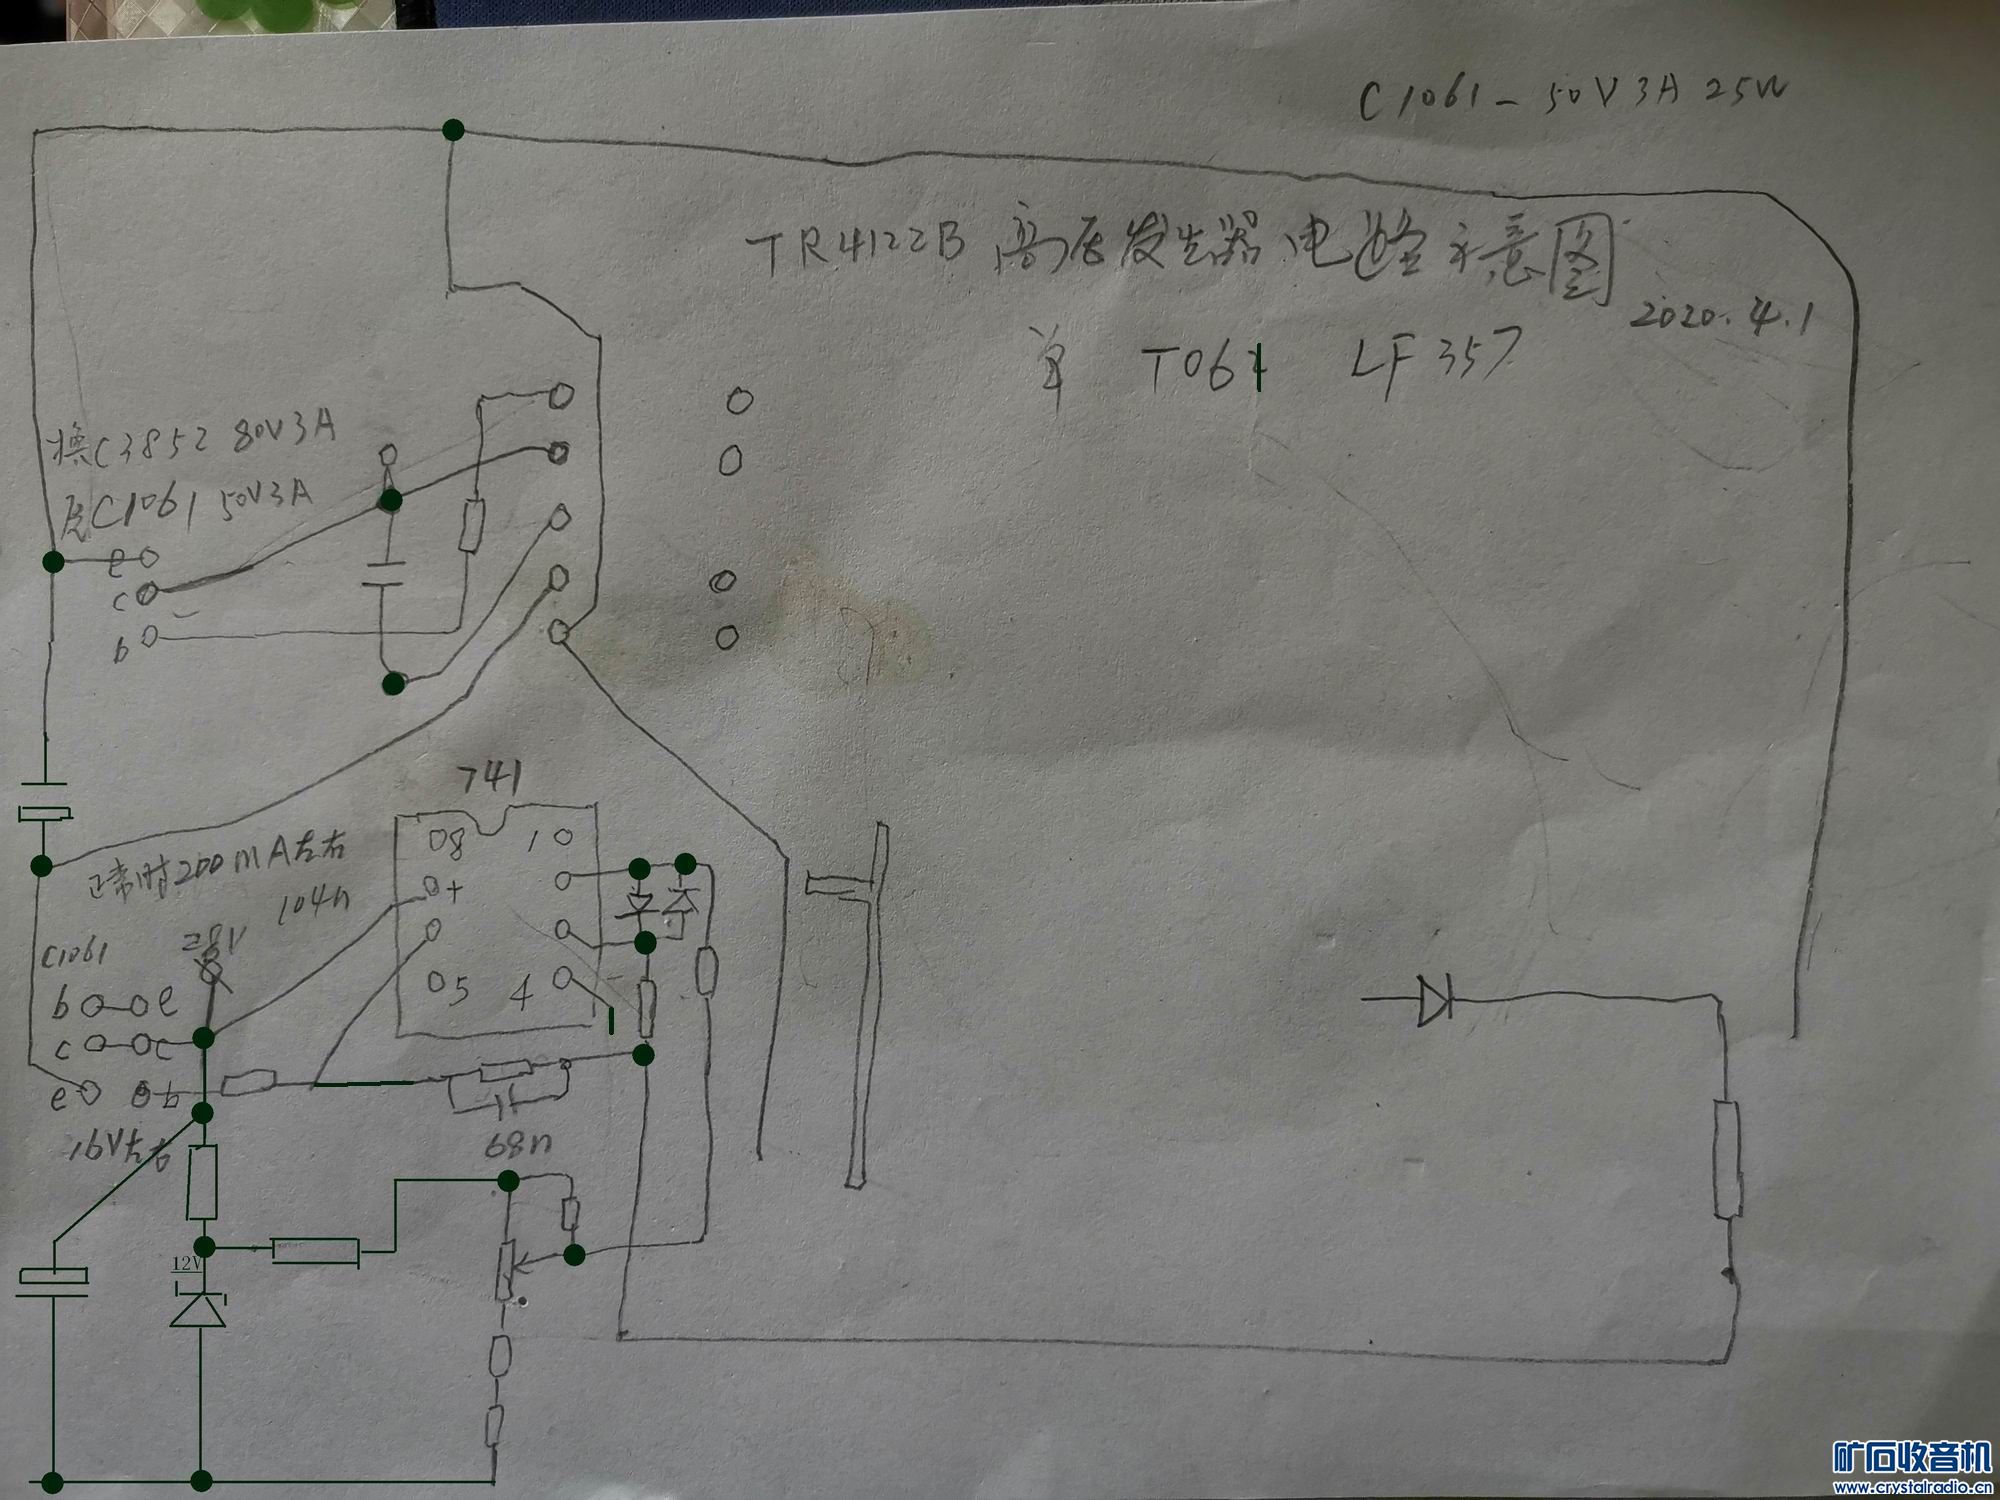 C1061-50V3A 25W
TR4122B 高压发生器电路示意图
2020.4.1
单 T061 LF357
换C3852 80V3A
原C1061 50V3A
e
c
b
741
08 1
+
5 4
正常时200mA左右
104n
28V
C1061
b e
c c
e b
16V左右
68n
12V
矿石收音机
www.crystalradio.cn